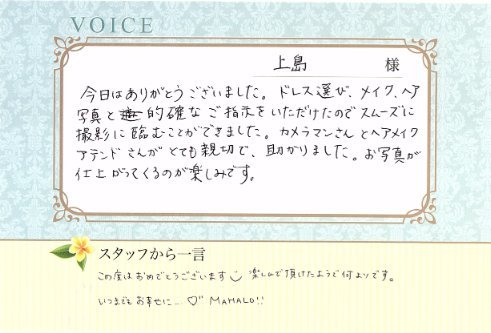 VOICE
上島 様
今日はありがとうございました。ドレス選び、メイク、ヘア
写真と 的確なご指示をいただけたのでスムーズに
撮影に臨むことができました。カメラマンさんとヘアメイク
アテンドさんがとても親切で、助かりました。お写真が
仕上がってくるのが楽しみです。
スタッフから一言
この度はおめでとうございます 楽しんで頂けたようで何よりです。
いつまでもお幸せに… ♡ MAHALO!!